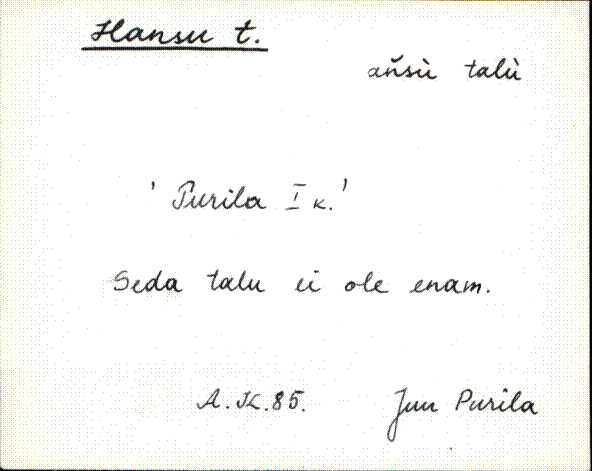 Hansu t.
ańsù talù
' Purila I k.'
Seda talu ei ole enam.
A. K. 85. Juu Purila